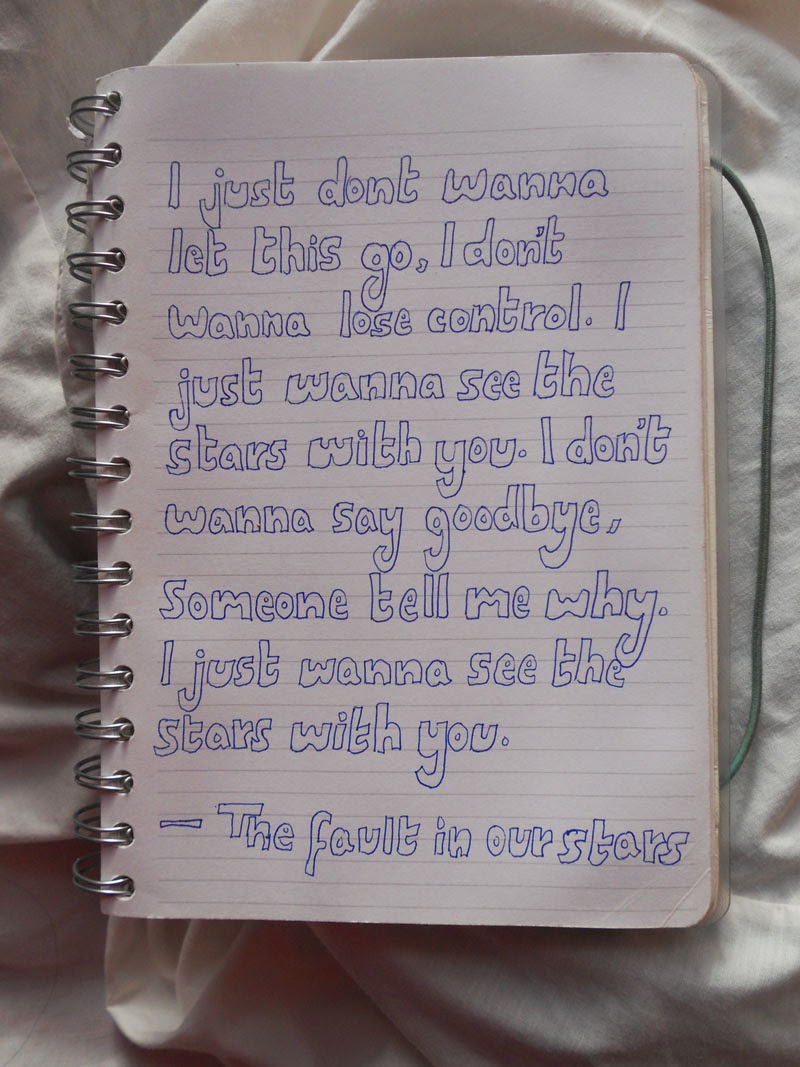 I just dont wanna
let this go, I don't
wanna lose control. I
just wanna see the
stars with you. I don't
wanna say goodbye,
Someone tell me why.
I just wanna see the
stars with you.
— The fault in our stars